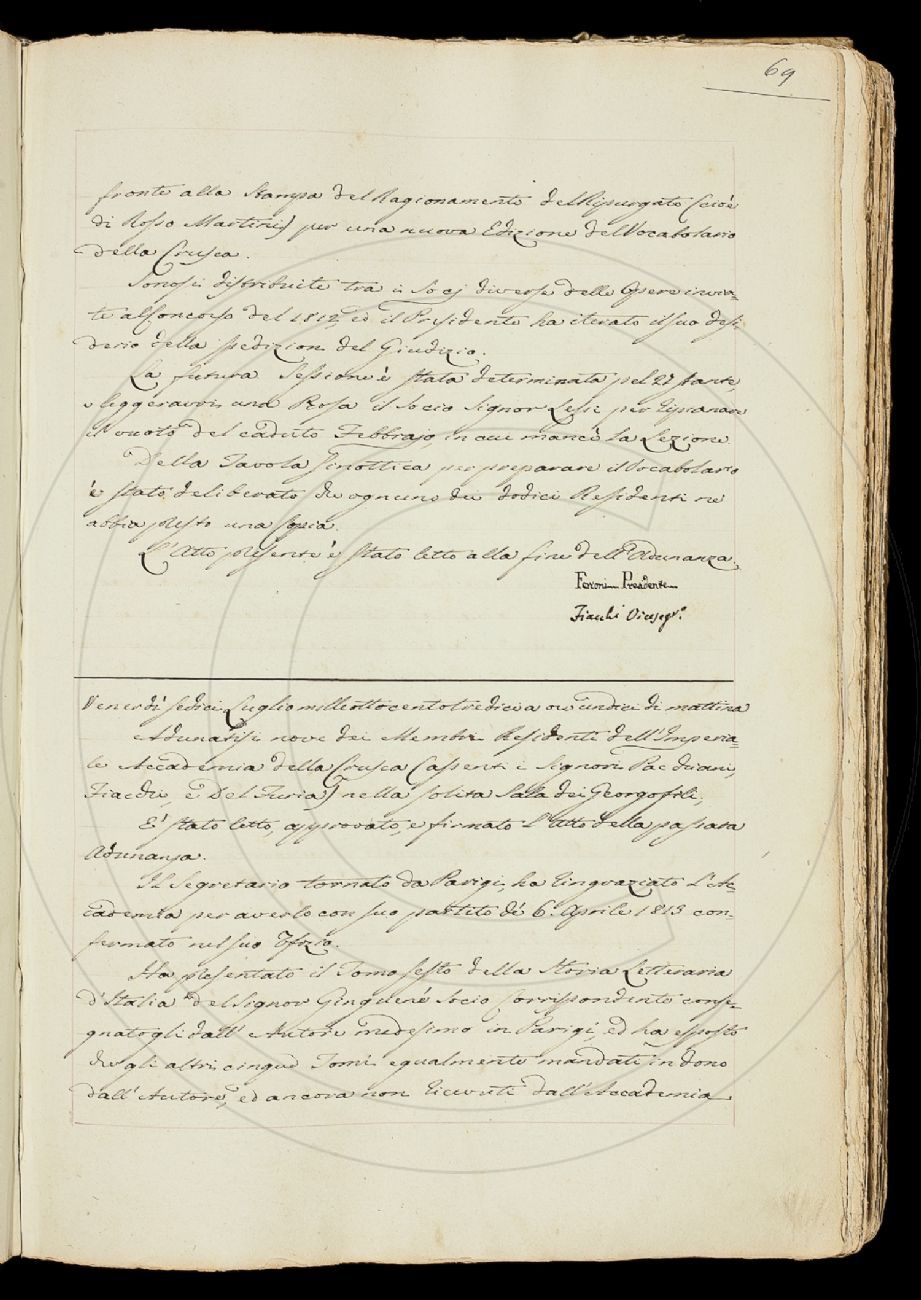 69
fronte alla Stampa del Ragionamento del Ripurgato (cioè
di Rosso Martini) per una nuova Edizione del Vocabolario
della Crusca.
Sonosi distribuite tra i Socj diverse delle Opere invia=
te al Concorso del 1812, ed il Presidente ha iterato il suo desi
derio della spedizione del Giudizio.
La futura Sessione è stata determinata pel 27 stante,
e leggeravvi una Prosa il Socio Signor Lessi per ripianare
il vuoto del caduto Febbrajo, in cui mancò la Lezione.
Della Tavola Sinottica per preparare il Vocabolario
è stato deliberato che ognuno dei dodici Residenti ne
abbia presto una Copia.
L'Atto presente è stato letto alla fine dell'Adunanza.
Ferroni Presidente
Fiacchi Vicesegr.º
Venerdì sedici Luglio milleottocentotredici a ore undici di mattina
Adunatisi nove dei Membri Residenti dell'Imperia=
le Accademia della Crusca (assenti i Signori
Fiacchi, e Del Furia) nella solita Sala dei Georgofili,
E' stato letto, approvato, e firmato l'Atto della passata
Adunanza.
Il Segretario tornato da Parigi, ha ringraziato l'Ac=
cademia per averlo con suo partito de' 6. Aprile 1813 con=
fermato nel suo Ufizio.
Ha presentato il Tomo sesto della Storia Letteraria
d'Italia del Signor Ginguené Socio Corrispondente conse=
gnatogli dall'Autore medesimo in Parigi, ed ha esposto
che gli altri cinque Tomi egualmente mandati in dono
dall'Autore, ed ancora non ricevuti dall'Accademia